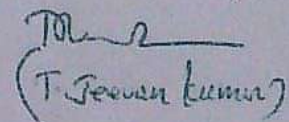 (T. Jeevan kumar)